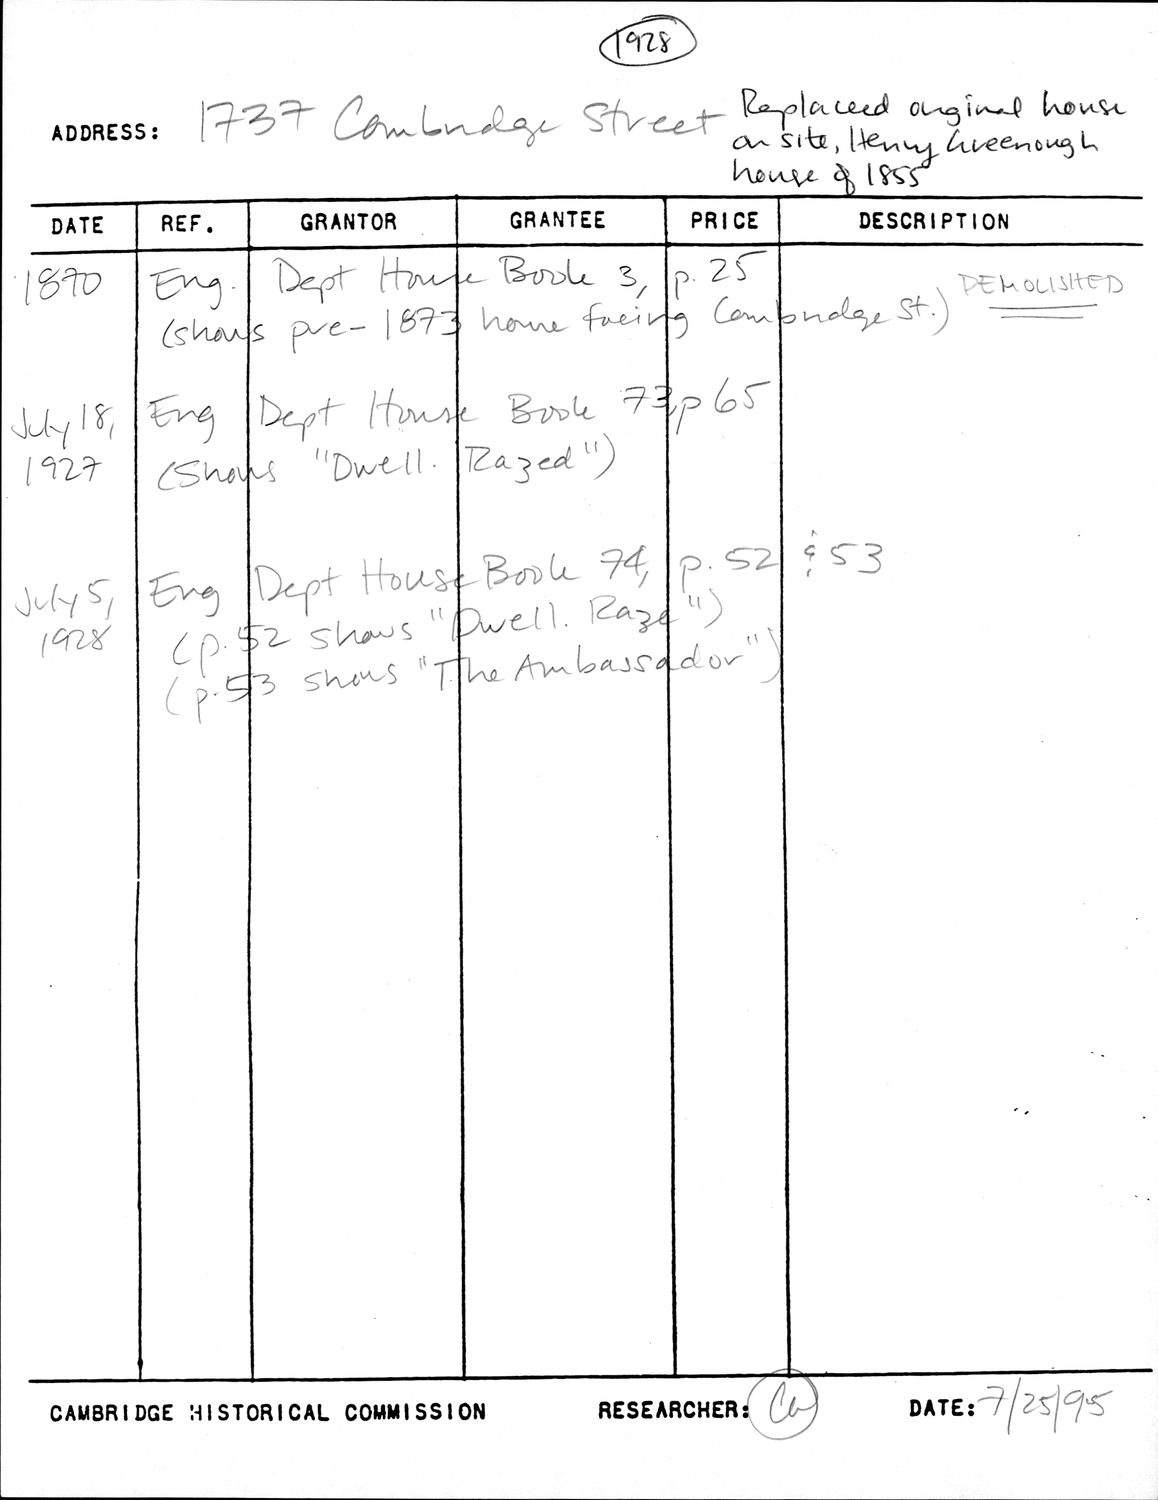 1928
ADDRESS: 1737 Cambridge Street
Replaced original house
on site, Henry Greenough
house of 1855
DATE REF. GRANTOR GRANTEE PRICE DESCRIPTION
1870 Eng. Dept House Book 3, p. 25 DEMOLISHED
(shows pre-1873 home facing Cambridge St.)
July 18, Eng Dept House Book 73, p 65
1927 (Shows "Dwell. Razed")
July 5, Eng Dept House Book 74, p. 52 & 53
1928 (p. 52 shows "Dwell. Raze")
(p. 53 shows "The Ambassador")
CAMBRIDGE HISTORICAL COMMISSION RESEARCHER: DATE: 7/25/95